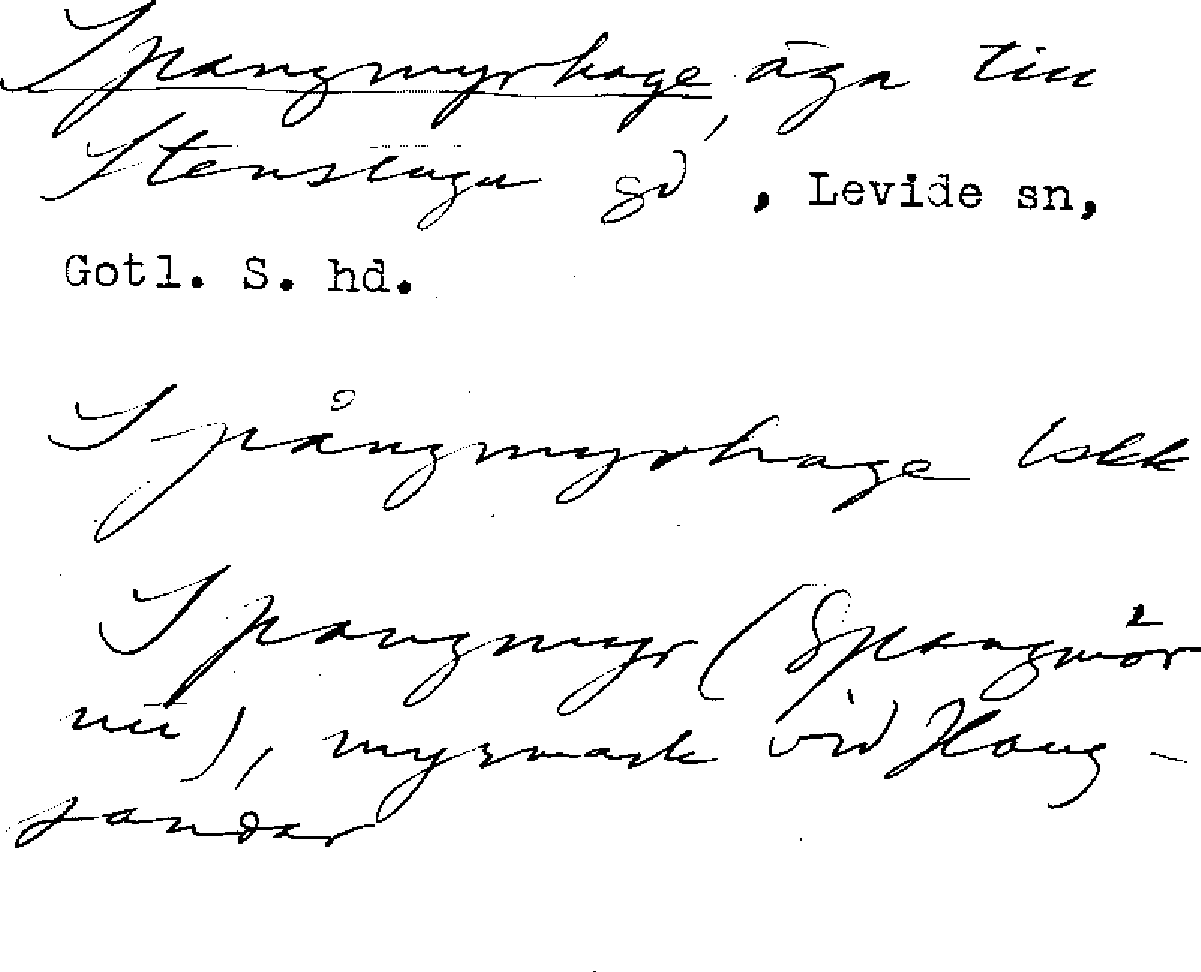 Spangmyrhage, äga till
Stenstugu gd, Levide sn,
Gotl. S. hd.
Spångmyrhage lskk
Spangmyr (Spangmör
nu), myrmark vid Haug-
sandar